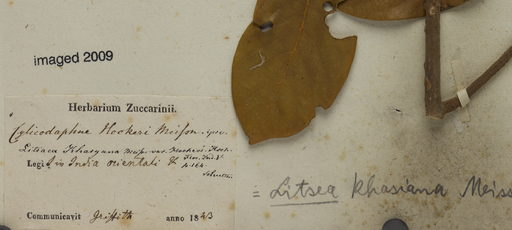 imaged 2009
Herbarium Zuccarinii.
Cylicodaphne Hookeri Meissn.
Litsaea Khasyana Meissn. var. Hookeri Hook.
Flor. Ind. V.
Legit in India orientali
p. 164
= Litsea khasiana Meiss
Communicavit Griffith anno 1843